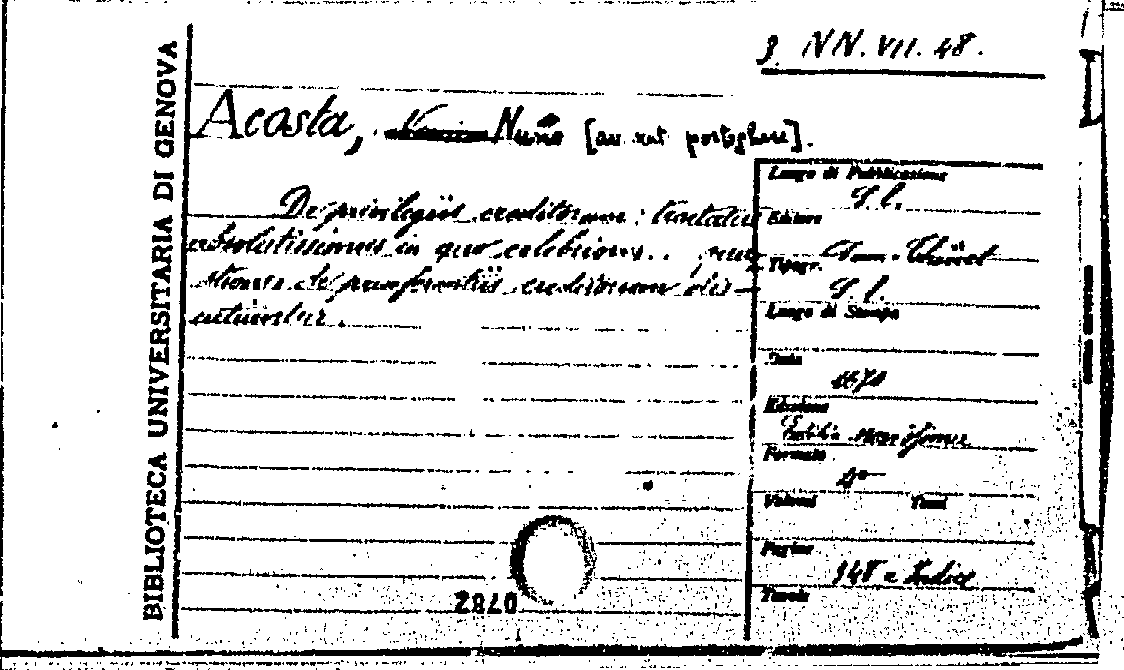 3. NN. VII. 48.
BIBLIOTECA UNIVERSITARIA DI GENOVA
Acosta, Nuño
De privilegiis creditorum: tractatus
absolutissimus in quo celebriores..
de praeferentiis creditorum dis-
Luogo di Pubblicazione
S. l.
Editore
Tipogr.
Luogo di Stampa
S. l.
Data
1670
Edizione
Formato
4°
Volumi Tomi
Pagine
348 e Indice
Tavole
2870